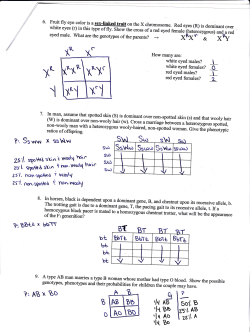 6. Fruit fly eye color is a sex-linked trait on the X chromosome. Red eyes (R) is dominant over
white eyes (r) in this type of fly. Show the cross of a red eyed female (heterozygous) and a red
eyed male. What are the genotypes of the parents? → XᴿXʳ & XᴿY
Xᴿ Xʳ
Xᴿ XᴿXᴿ XᴿXʳ
Y XᴿY XʳY
How many are:
white eyed males? 1
white eyed females?
red eyed males? 1
red eyed females? 2
7. In man, assume that spotted skin (S) is dominant over non-spotted skin (s) and that wooly hair
(W) is dominant over non-wooly hair (w). Cross a marriage between a heterozygous spotted,
non-wooly man with a heterozygous wooly-haired, non-spotted woman. Give the phenotypic
ratios of offspring.
P: Ssww x ssWw
25% spotted skin & wooly hair
25% spotted skin & non wooly hair
25% non spotted & wooly
25% non spotted & non wooly
8. In horses, black is dependent upon a dominant gene, B, and chestnut upon its recessive allele, b.
The trotting gait is due to a dominant gene, T, the pacing gait to its recessive allele, t. If a
homozygous black pacer is mated to a homozygous chestnut trotter, what will be the appearance
of the F₁ generation?
P: BBtt x bbTT
9. A type AB man marries a type B woman whose mother had type O blood. Show the possible
genotypes, phenotypes and their probabilities for children the couple may have.
P: AB x BO
A B
B AB BB
O AO BO
1/4 AB
1/4 BB
1/4 AO
1/4 BO
50% B
25% AB
25% A